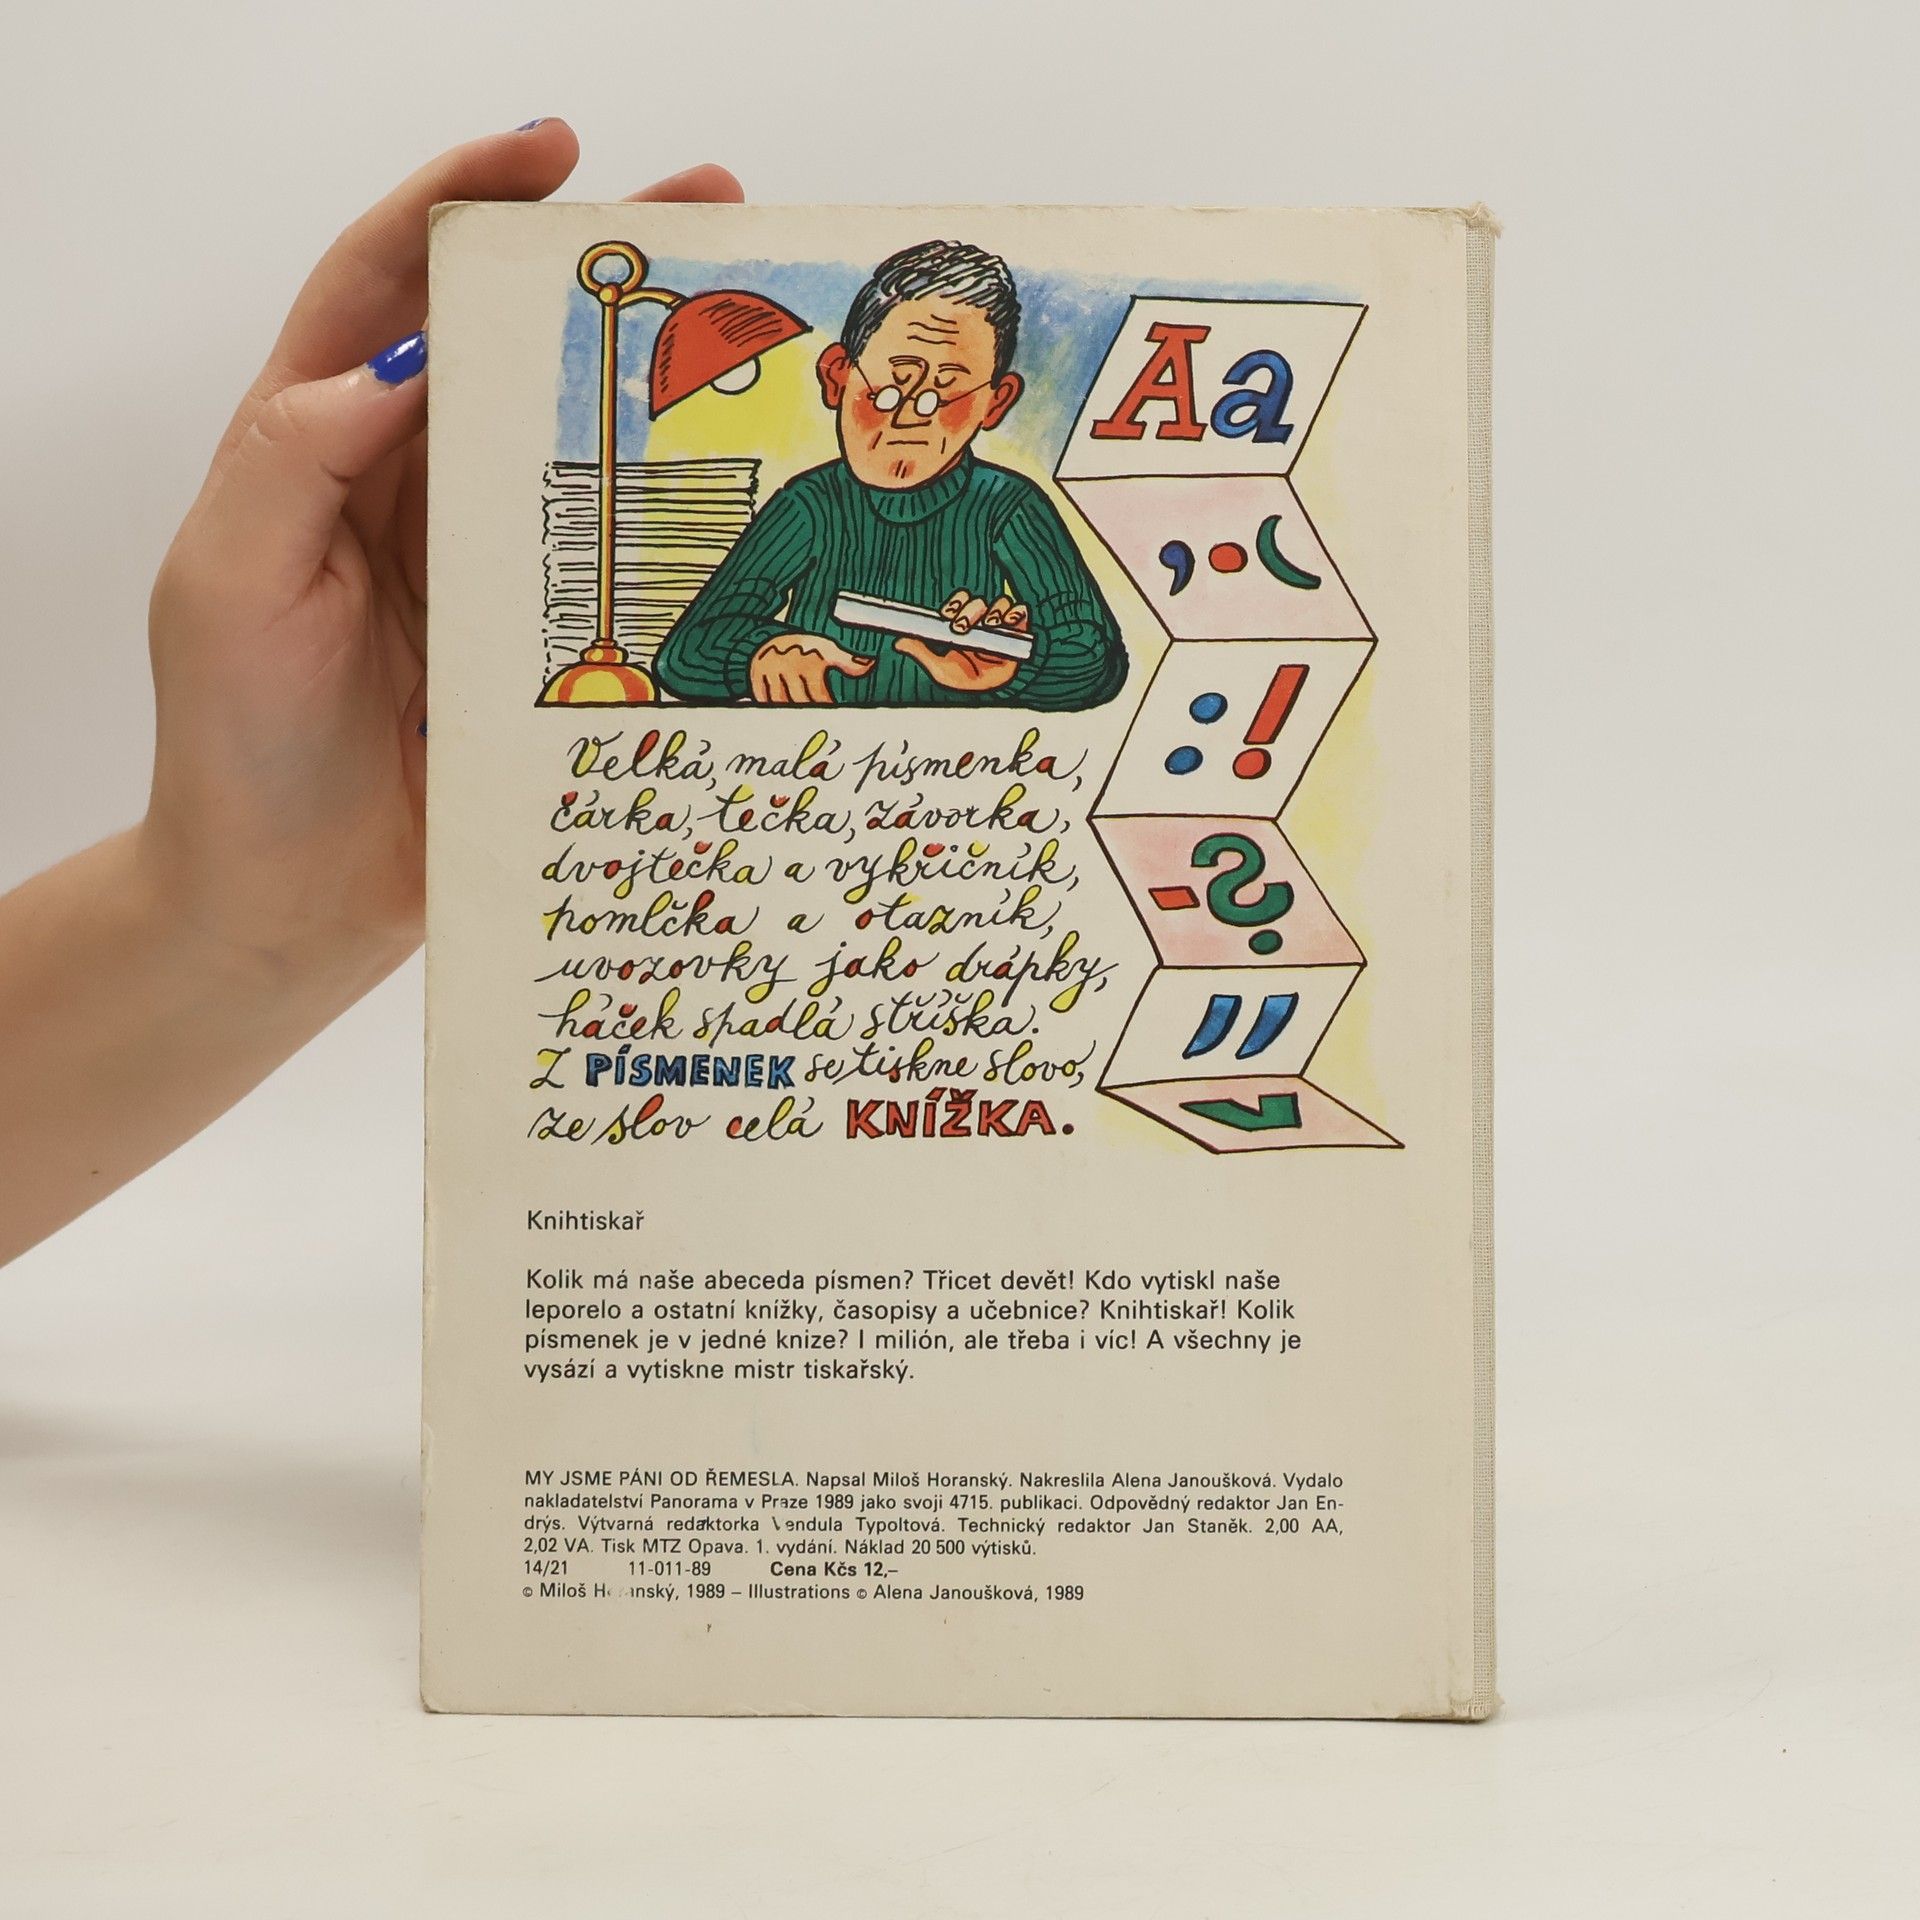 Aa
, . (
: !
- ?
"
Velká, malá písmenka,
čárka, tečka, závorka,
dvojtečka a vykřičník,
pomlčka a otazník,
uvozovky jako drápky,
háček spadlá stříška.
Z PÍSMENEK se tiskne slovo,
ze slov celá KNÍŽKA.
Knihtiskař
Kolik má naše abeceda písmen? Třicet devět! Kdo vytiskl naše
leporelo a ostatní knížky, časopisy a učebnice? Knihtiskař! Kolik
písmenek je v jedné knize? I milión, ale třeba i víc! A všechny je
vysází a vytiskne mistr tiskařský.
MY JSME PÁNI OD ŘEMESLA. Napsal Miloš Horanský. Nakreslila Alena Janoušková. Vydalo
nakladatelství Panorama v Praze 1989 jako svoji 4715. publikaci. Odpovědný redaktor Jan En-
drýs. Výtvarná redaktorka Vendula Typoltová. Technický redaktor Jan Staněk. 2,00 AA,
2,02 VA. Tisk MTZ Opava. 1. vydání. Náklad 20 500 výtisků.
14/21 11-011-89 Cena Kčs 12,–
© Miloš Horanský, 1989 – Illustrations © Alena Janoušková, 1989